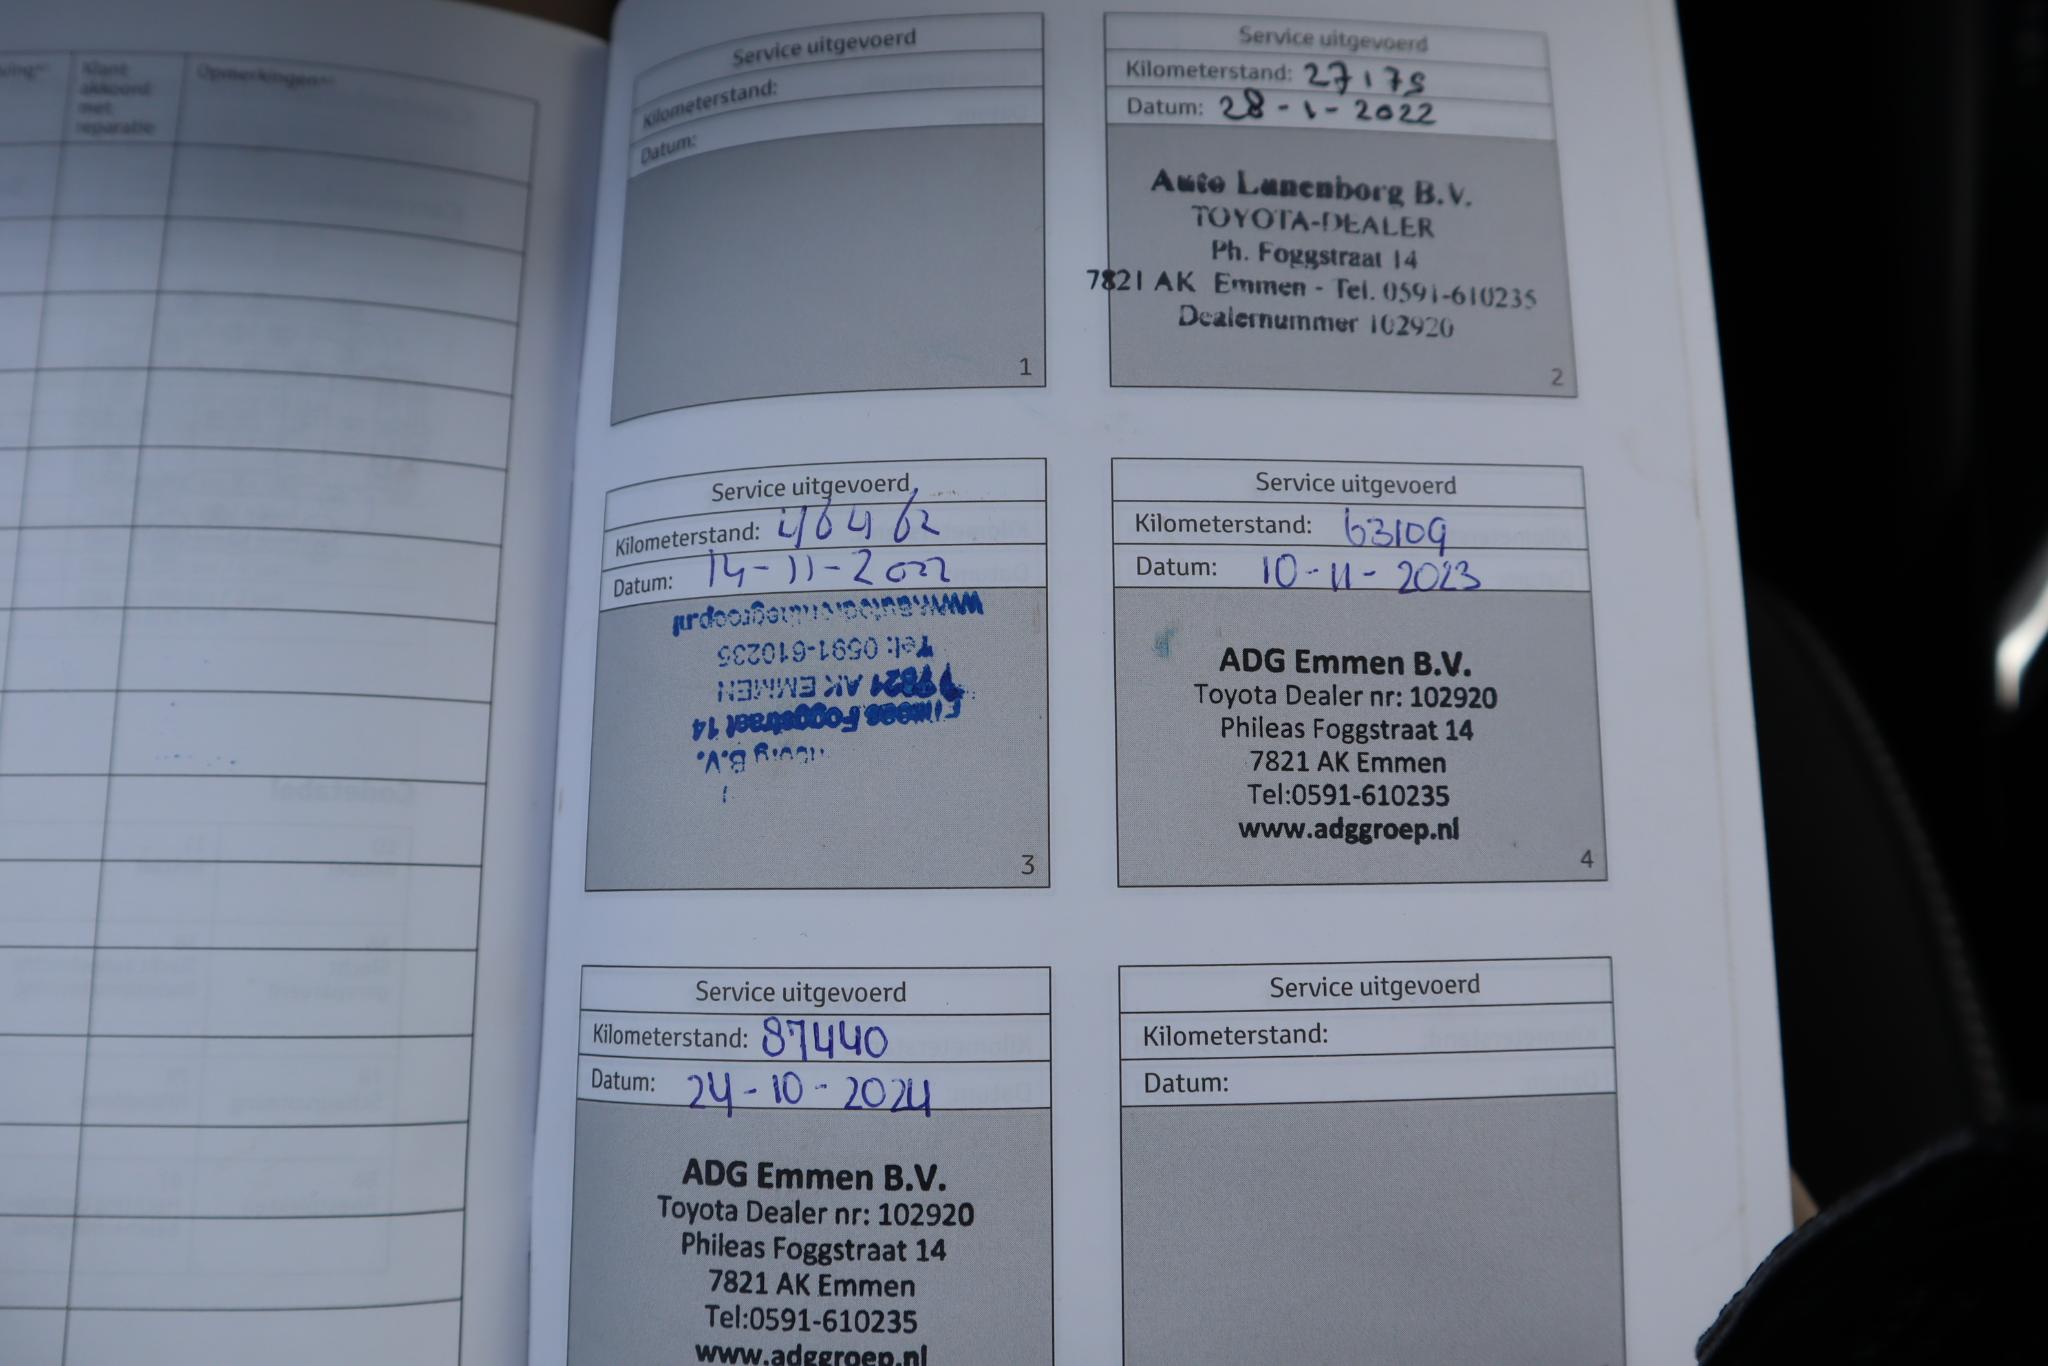 Klant
akkoord
met
reparatie
Opmerkingen
Codetabel
Service uitgevoerd
Kilometerstand:
Datum:
1
Service uitgevoerd
Kilometerstand: 27175
Datum: 28-1-2022
Auto Lunenborg B.V.
TOYOTA-DEALER
Ph. Foggstraat 14
7821 AK Emmen - Tel. 0591-610235
Dealernummer 102920
2
Service uitgevoerd
Kilometerstand: 46462
Datum: 14-11-2022
B.V.
Foggstraat 14
7821 AK EMMEN
Tel: 0591-610235
3
Service uitgevoerd
Kilometerstand: 63109
Datum: 10-11-2023
ADG Emmen B.V.
Toyota Dealer nr: 102920
Phileas Foggstraat 14
7821 AK Emmen
Tel:0591-610235
www.adggroep.nl
4
Service uitgevoerd
Kilometerstand: 87440
Datum: 24-10-2024
ADG Emmen B.V.
Toyota Dealer nr: 102920
Phileas Foggstraat 14
7821 AK Emmen
Tel:0591-610235
www.adggroep.nl
Service uitgevoerd
Kilometerstand:
Datum: